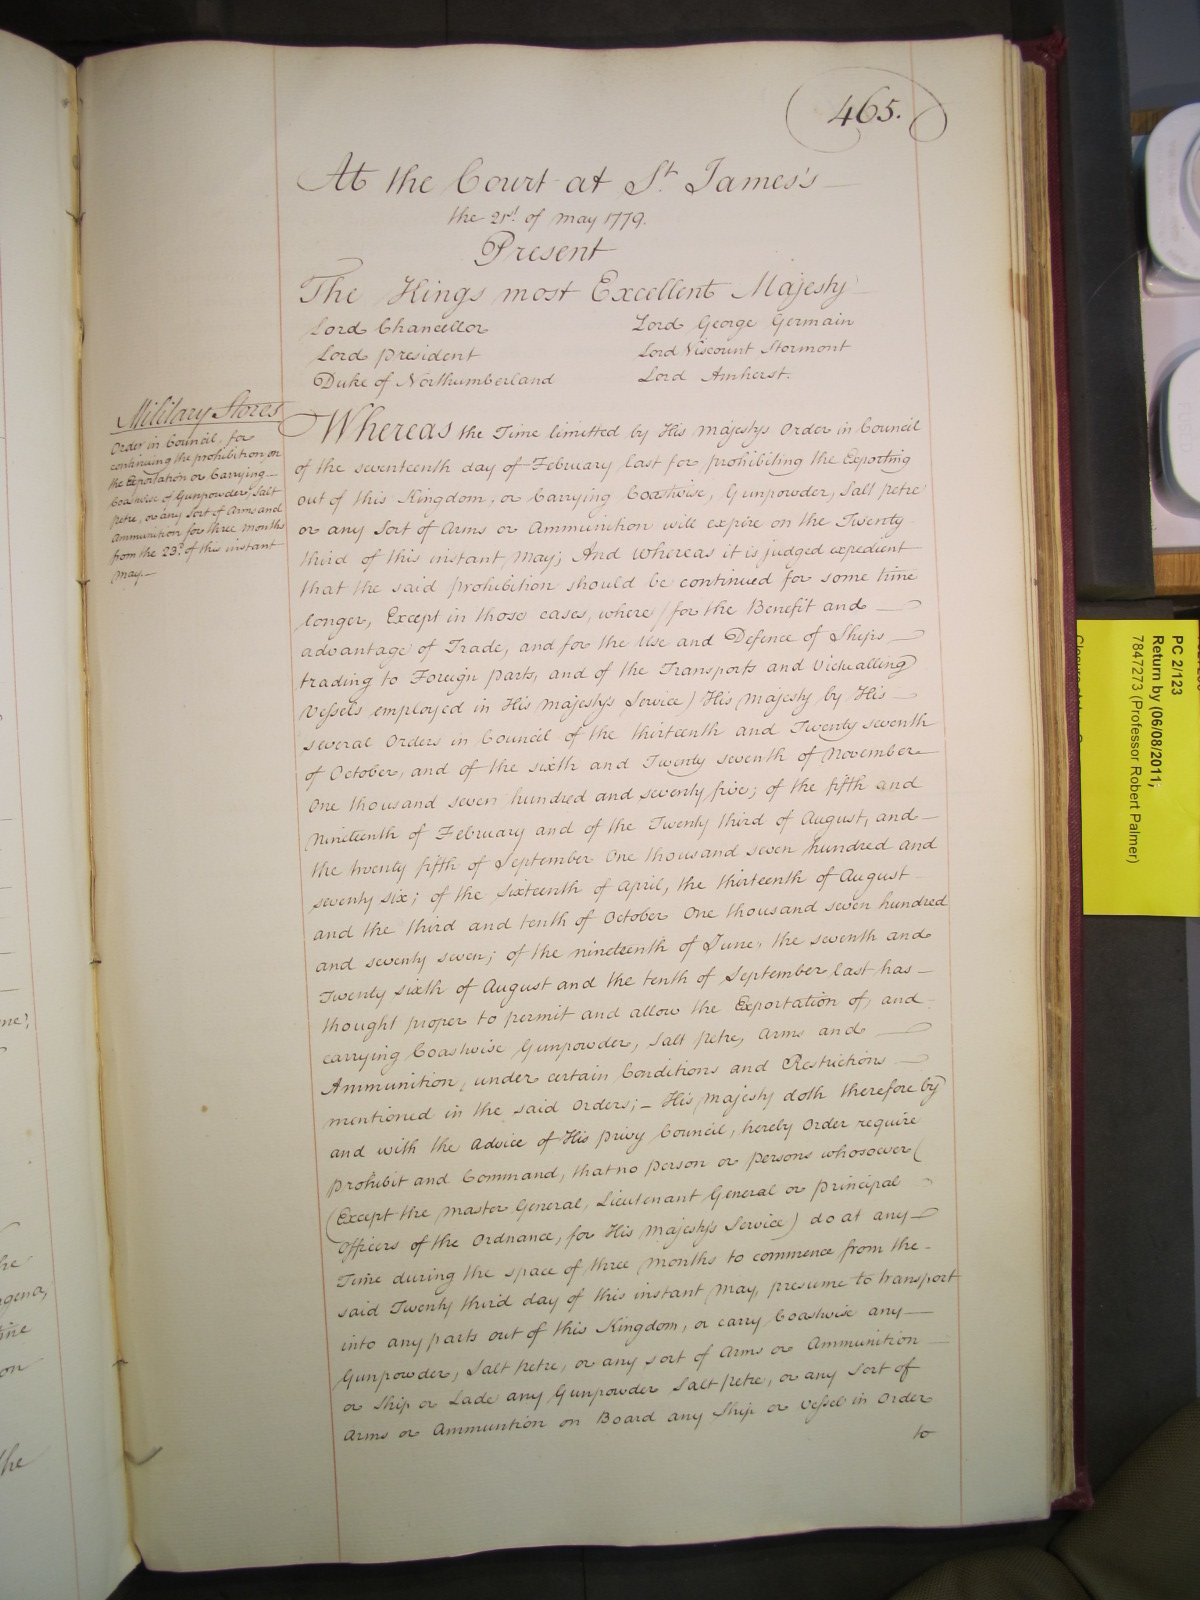 465.
At the Court at St. James's
the 21st. of May 1779.
Present
The Kings most Excellent Majesty
Lord Chancellor
Lord President
Duke of Northumberland
Lord George Germain
Lord Viscount Stormont
Lord Amherst.
Military Stores
Order in Council, for
continuing the prohibition, on
the Exportation or Carrying
Coastwise of Gunpowder, Salt
Petre, or any Sort of Arms and
Ammunition for three months
from the 23d. of this instant
May.
Whereas the Time limitted by His Majestys Order in Council
of the seventeenth day of February last for prohibiting the Exporting
out of this Kingdom, or Carrying Coastwise, Gunpowder, Salt Petre
or any Sort of Arms or Ammunition will expire on the Twenty
third of this instant May; And whereas it is judged expedient
that the said Prohibition should be continued for some time
longer, Except in those cases, where (for the Benefit and
advantage of Trade, and for the Use and Defence of Ships
trading to Foreign parts, and of the Transports and Victualling
Vessels employed in His Majestys Service) His Majesty by His
several Orders in Council of the thirteenth and Twenty seventh
of October, and of the sixth and Twenty seventh of November
One thousand seven hundred and seventy five; of the fifth and
Nineteenth of February and of the Twenty third of August, and
the twenty fifth of September One thousand seven hundred and
seventy six; of the sixteenth of April, the thirteenth of August
and the third and tenth of October One thousand seven hundred
and seventy seven; of the nineteenth of June, the seventh and
Twenty sixth of August and the tenth of September last has
thought proper to permit and allow the Exportation of, and
carrying Coastwise Gunpowder, Salt Petre, Arms and
Ammunition, under certain Conditions and Restrictions
mentioned in the said Orders; – His Majesty doth therefore by
and with the Advice of His Privy Council, hereby Order require
Prohibit and Command, that no Person or Persons whosoever
(Except the Master General, Lieutenant General or Principal
Officers of the Ordnance, for His Majestys Service) do at any
Time during the space of three Months to commence from the
said Twenty third day of this instant May, presume to transport
into any parts out of this Kingdom, or carry Coastwise any
Gunpowder, Salt Petre, or any sort of Arms or Ammunition
or Ship or Lade any Gunpowder Salt Petre, or any Sort of
Arms or Ammunition on Board any Ship or Vessel in Order
to
PC 2/123
Return by (06/08/2011;
7847273 (Professor Robert Palmer)